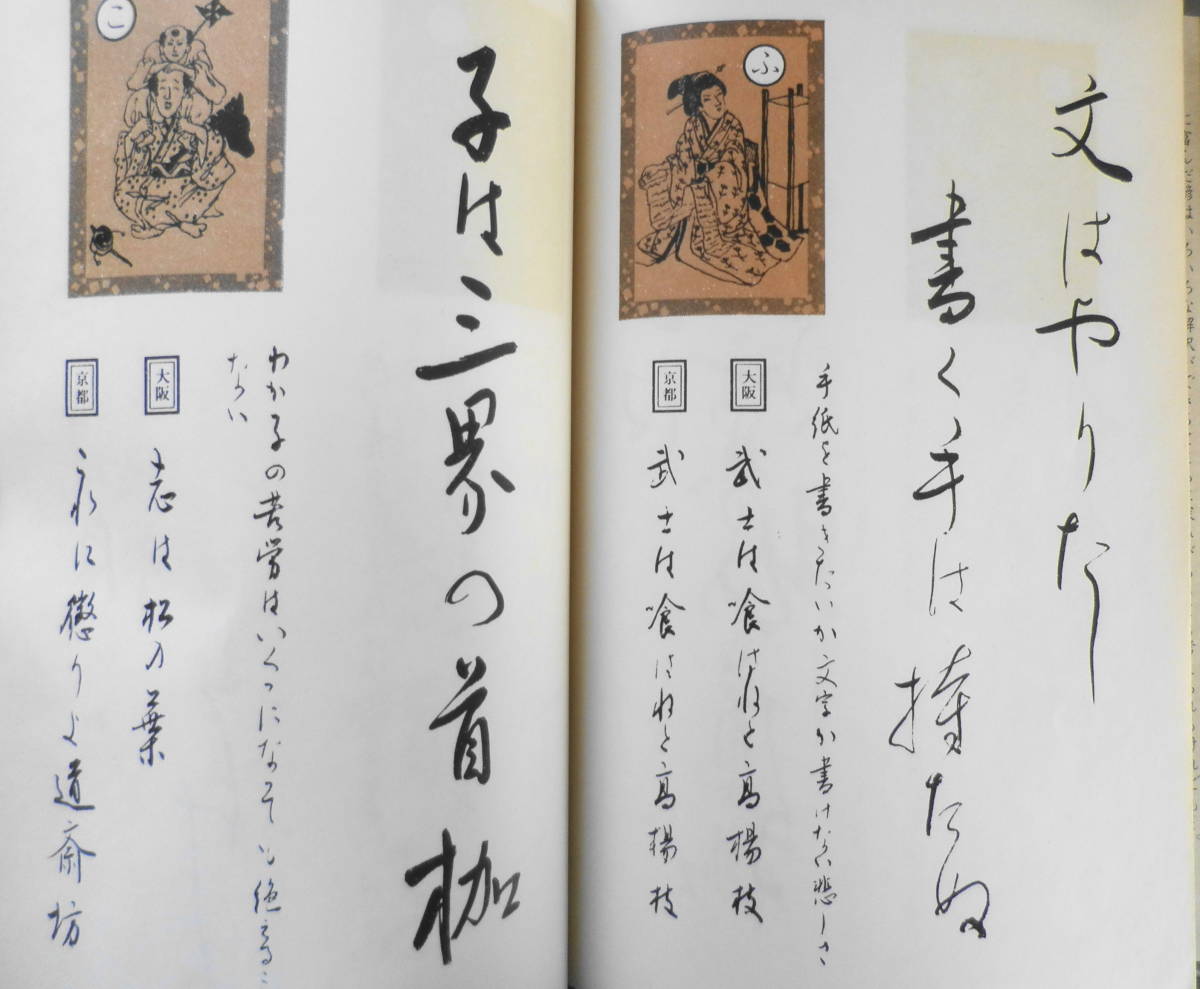 ふ
文はやりたし
書く手は持たぬ
手紙を書きたいが文字が書けない悲しさ
大阪
武士は喰はねど高楊枝
京都
武士は喰はねど高楊枝
こ
子は三界の首枷
わが子の苦労はいくつになっても絶えることが
ない
大阪
志は松の葉
京都
これに懲りよ道斎坊